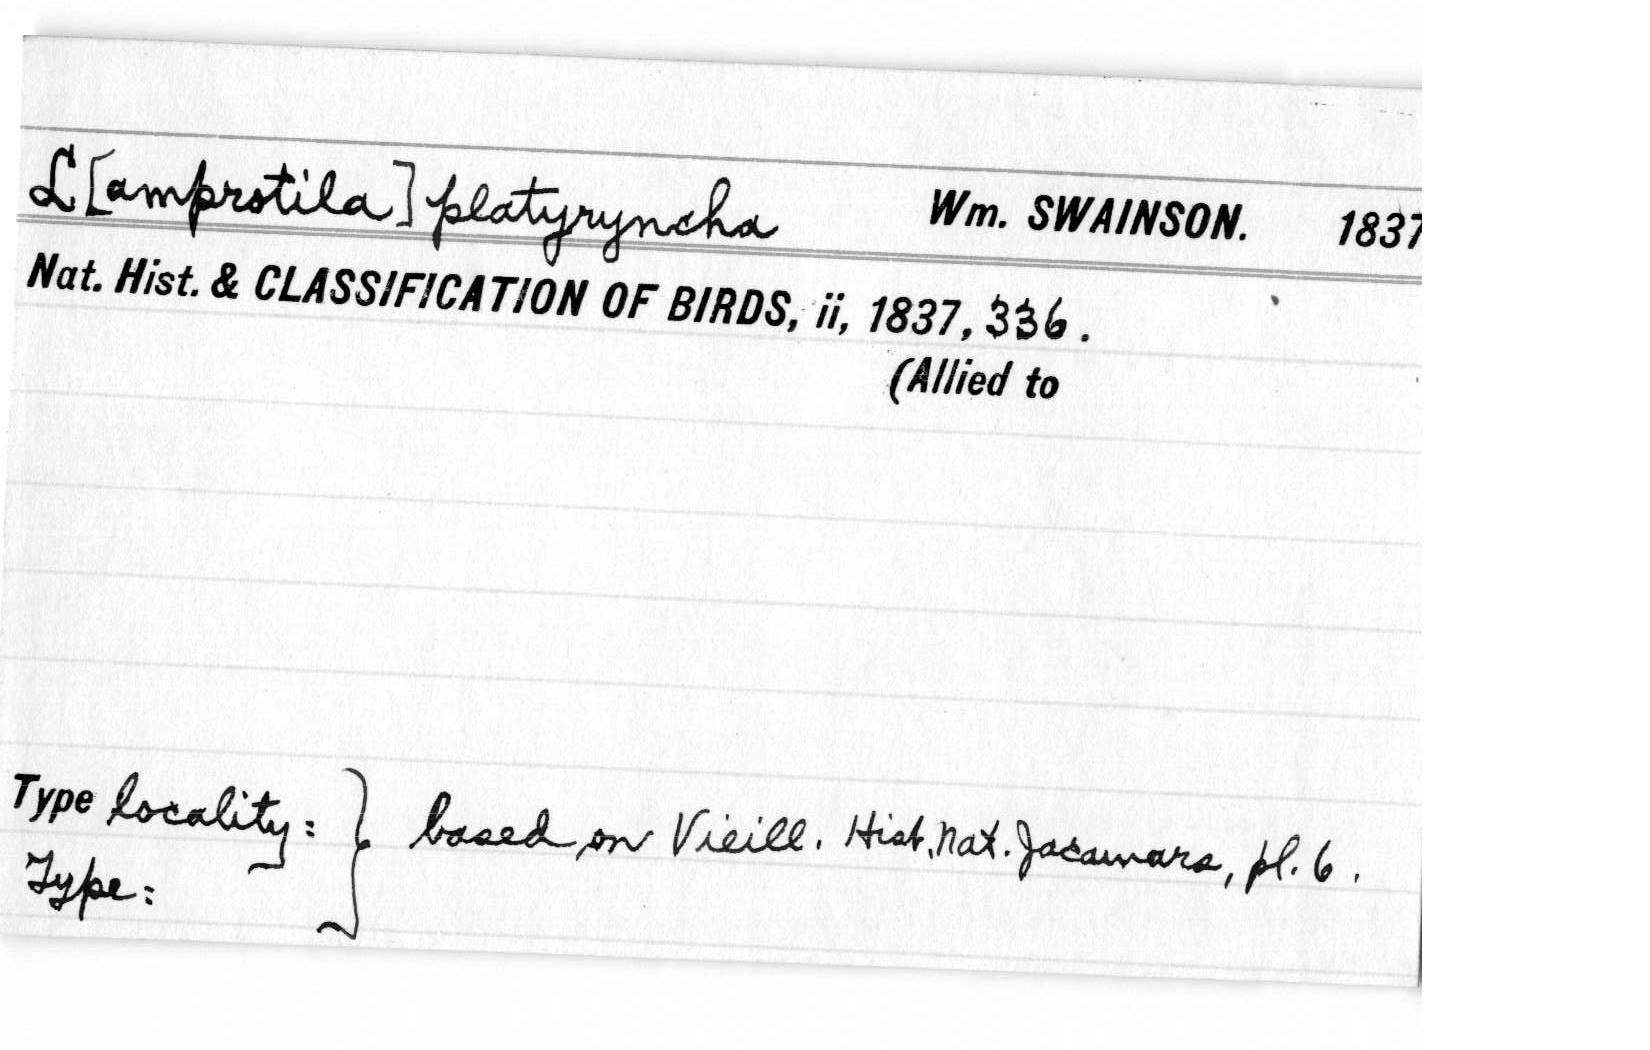 L[amprotila] platyryncha Wm. SWAINSON. 1837
Nat. Hist. & CLASSIFICATION OF BIRDS, ii, 1837, 336.
(Allied to
Type locality: } based on Vieill. Hist. Nat. Jacamars, pl. 6.
Type: